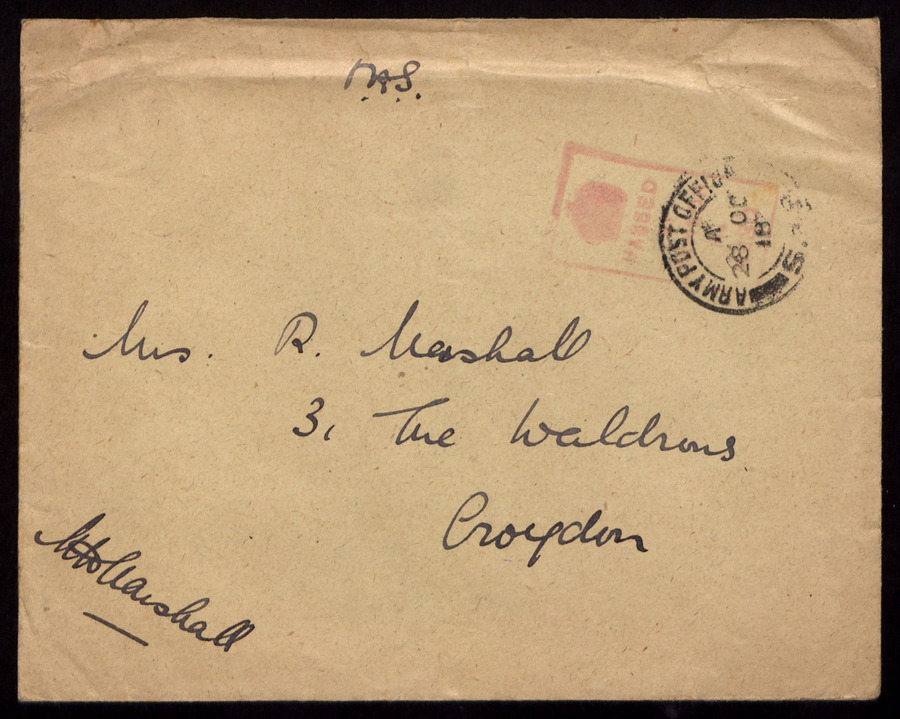 O.A.S.
PASSED
ARMY POST OFFICE
28 OC
18
S.
Mrs. R. Marshall
3, The Waldrons
Croydon
Marshall